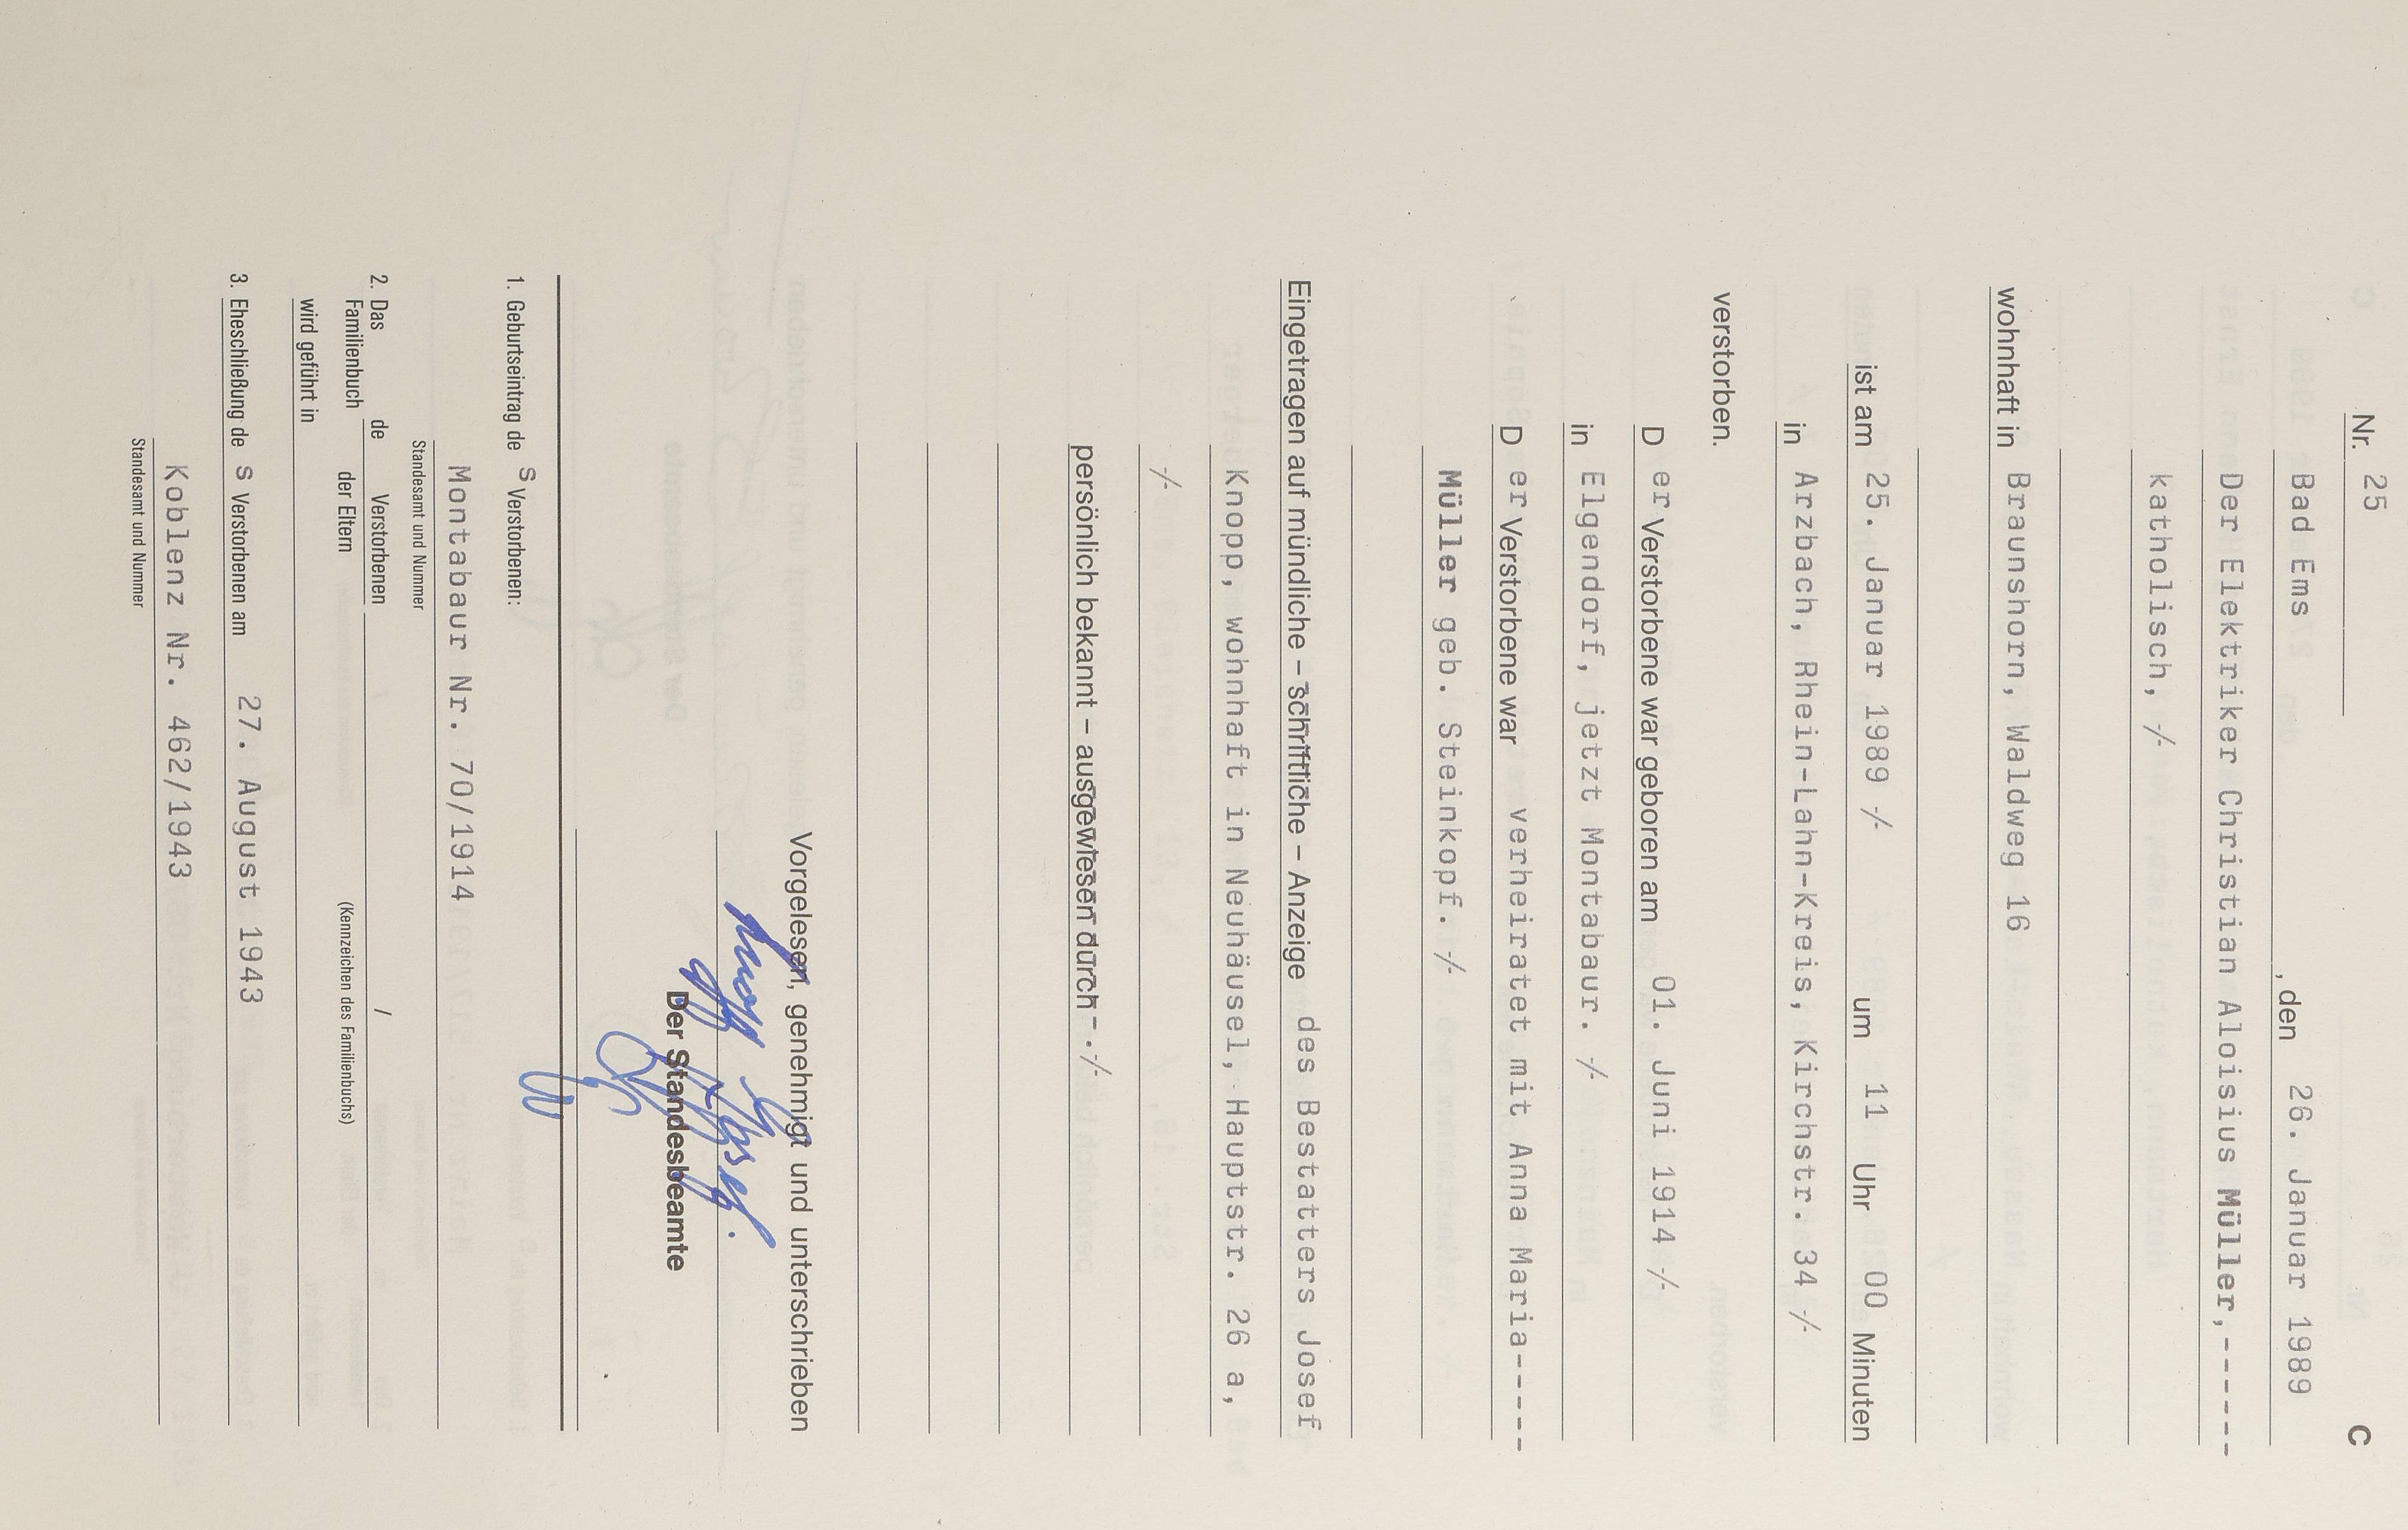 Nr. 25 C
Bad Ems , den 26. Januar 1989
Der Elektriker Christian Aloisius Müller,------
katholisch, ⁒
wohnhaft in Braunshorn, Waldweg 16
ist am 25. Januar 1989 ⁒ um 11 Uhr 00 Minuten
in Arzbach, Rhein-Lahn-Kreis, Kirchstr. 34 ⁒
verstorben.
D er Verstorbene war geboren am 01. Juni 1914 ⁒
in Elgendorf, jetzt Montabaur. ⁒
D er Verstorbene war verheiratet mit Anna Maria-----
Müller geb. Steinkopf. ⁒
Eingetragen auf mündliche – schriftliche – Anzeige des Bestatters Josef
Knopp, wohnhaft in Neuhäusel, Hauptstr. 26 a,
⁒
persönlich bekannt – ausgewiesen durch – . ⁒
Vorgelesen, genehmigt und unterschrieben
Der Standesbeamte
1. Geburtseintrag de s Verstorbenen:
Montabaur Nr. 70/1914
Standesamt und Nummer
2. Das de Verstorbenen /
Familienbuch der Eltern (Kennzeichen des Familienbuchs)
wird geführt in
3. Eheschließung de s Verstorbenen am 27. August 1943
Koblenz Nr. 462/1943
Standesamt und Nummer